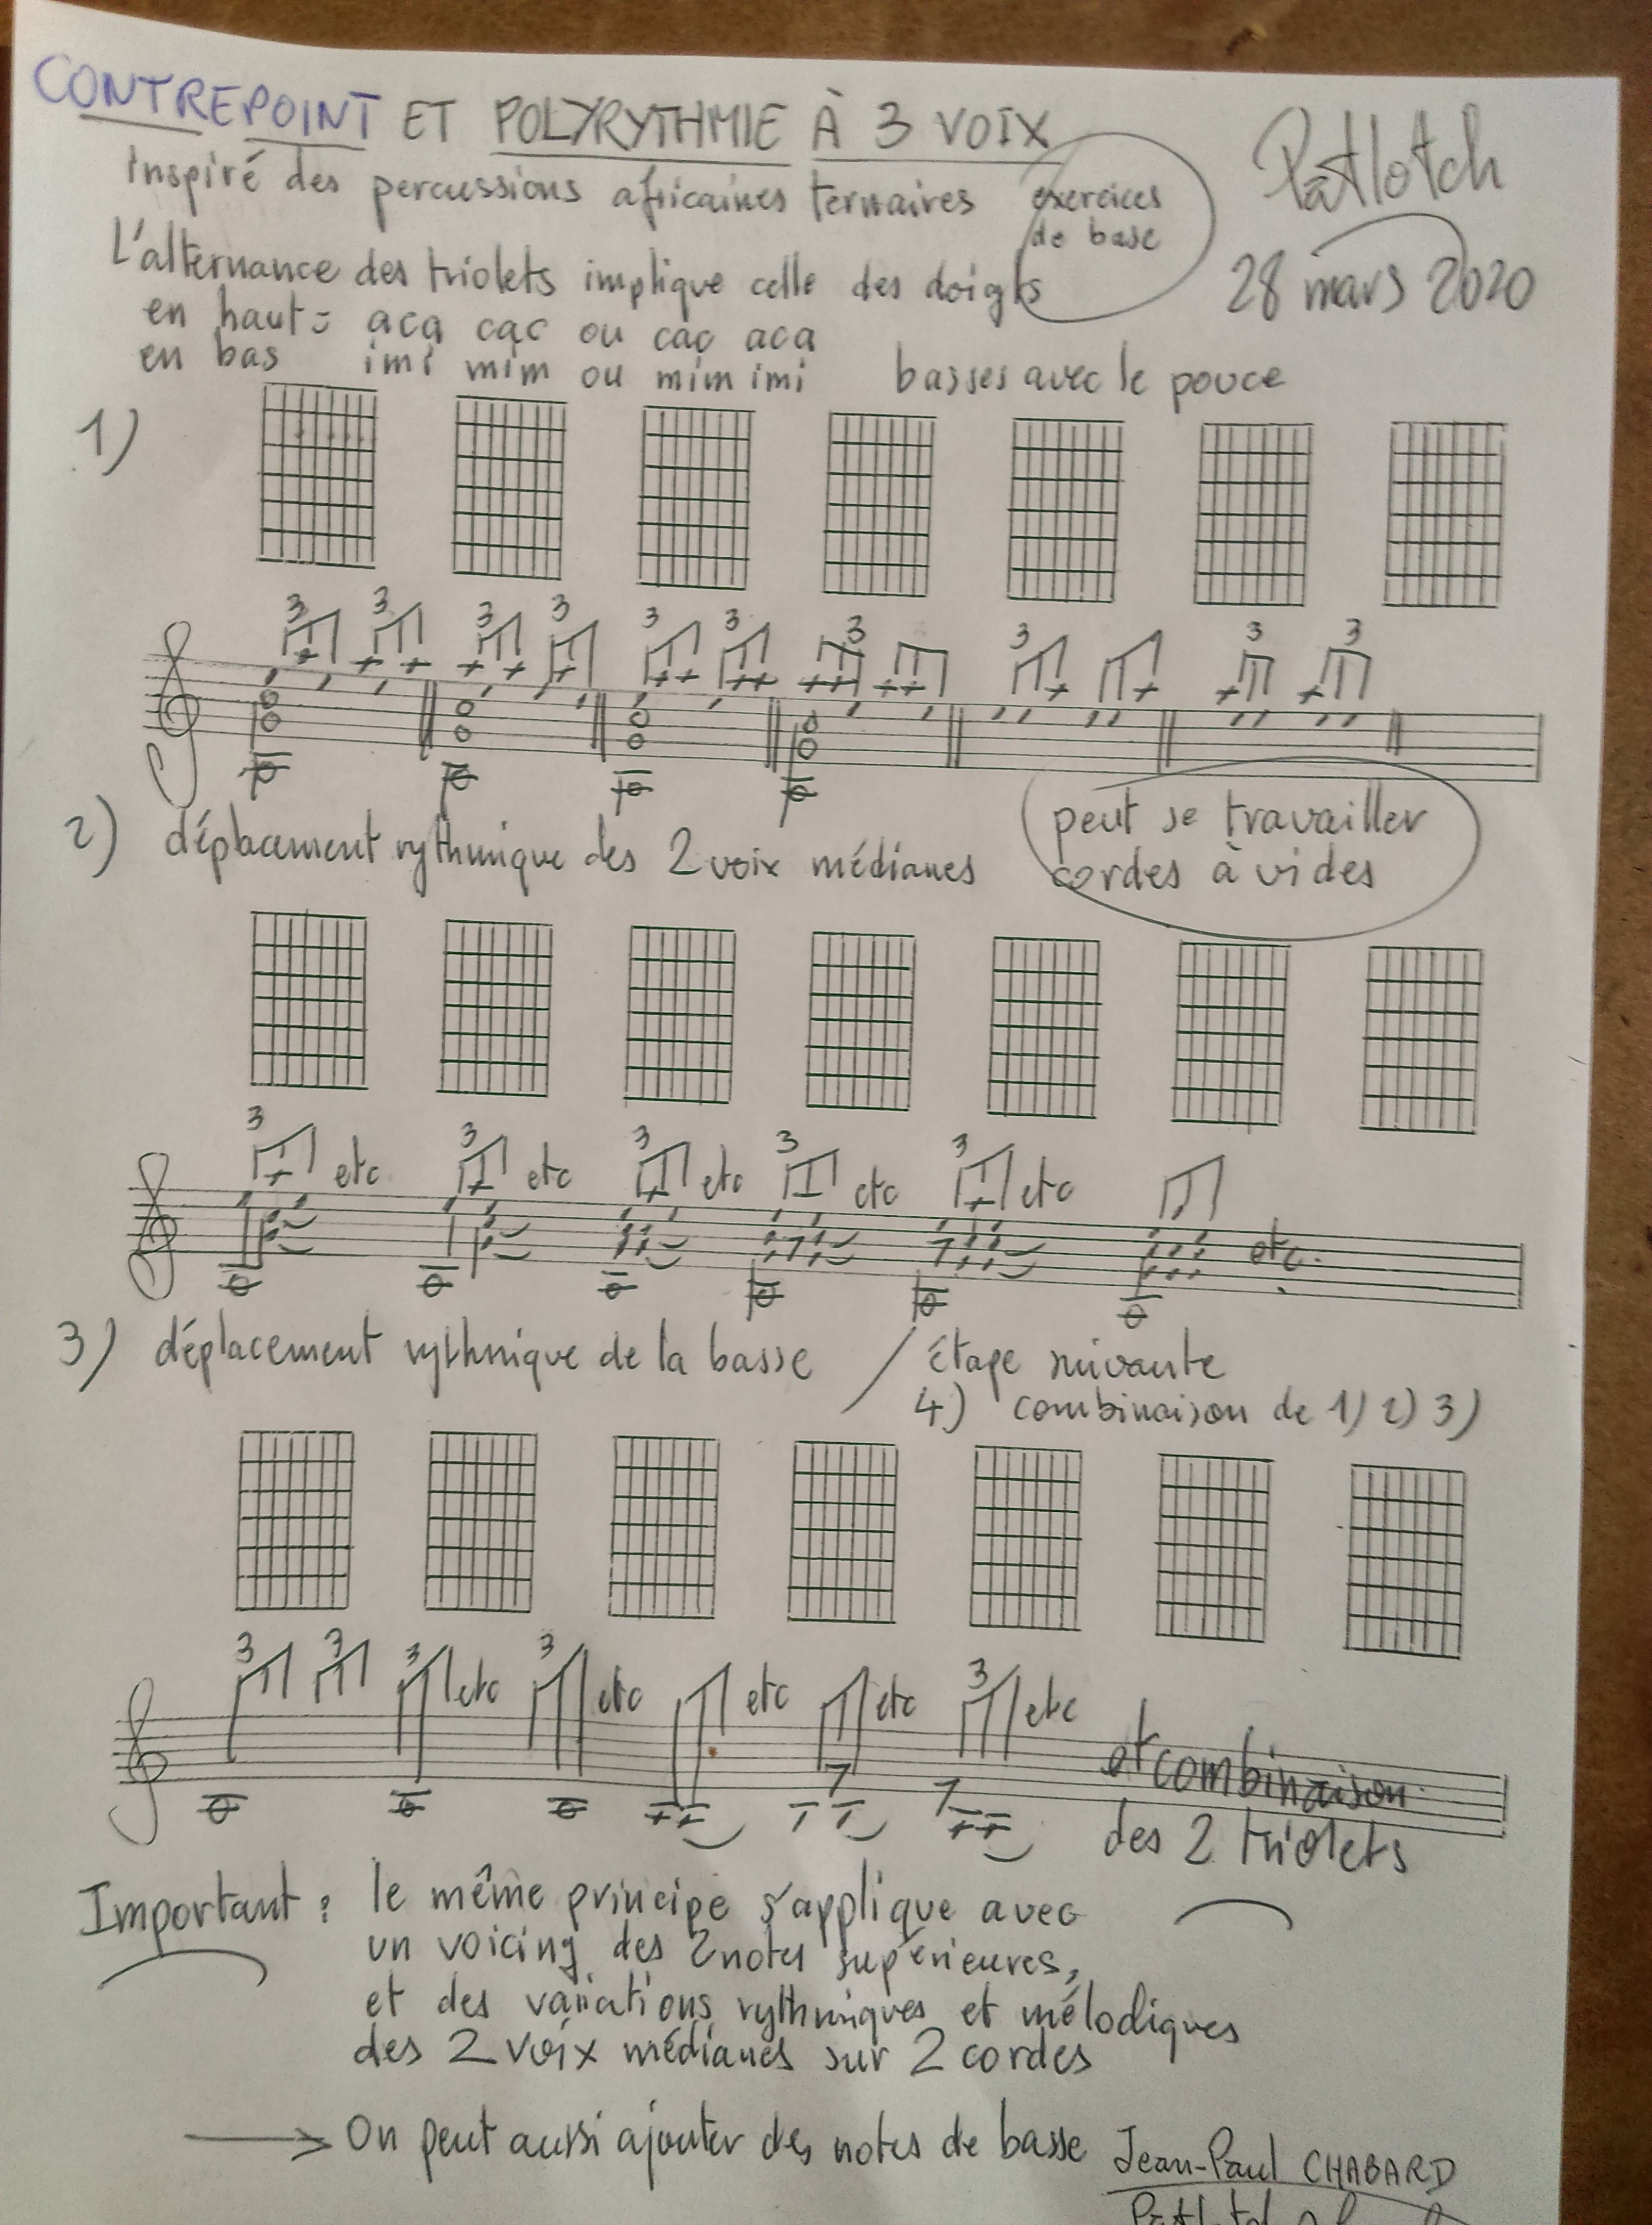 CONTREPOINT ET POLYRYTHMIE À 3 VOIX
Patlotch
inspiré des percussions africaines ternaires
exercices
de base
28 mars 2020
L'alternance des triolets implique celle des doigts
en haut : aca cac ou cac aca
en bas imi mim ou mim imi
basses avec le pouce
1)
3 3 3 3 3 3 3 3 3 3
2) déplacement rythmique des 2 voix médianes
peut se travailler
cordes à vides
3 etc 3 etc 3 etc 3 etc 3 etc etc.
3) déplacement rythmique de la basse
étape suivante
4) combinaison de 1) 2) 3)
3 3 3 etc 3 etc etc etc 3 etc
et combinaison
des 2 triolets
Important : le même principe s'applique avec
un voicing des 2 notes supérieures,
et des variations rythmiques et mélodiques
des 2 voix médianes sur 2 cordes
→ On peut aussi ajouter des notes de basse
Jean-Paul CHABARD